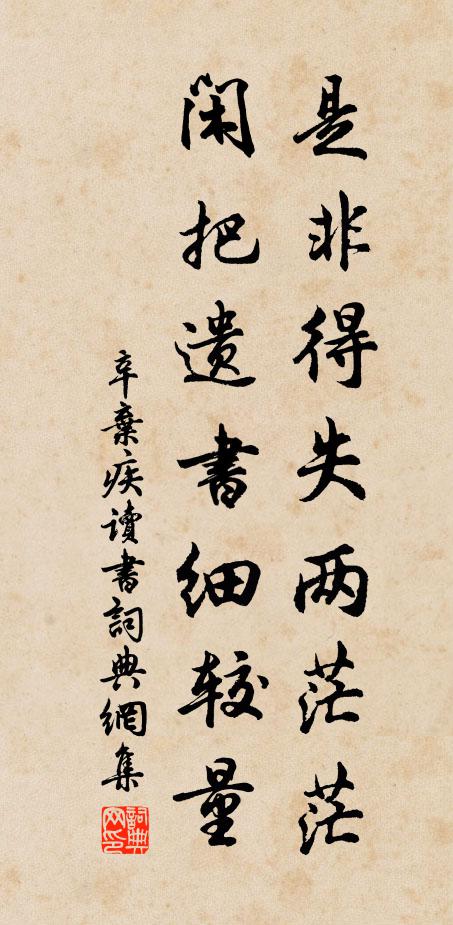 是非得失两茫茫
闲把遗書细较量
辛棄疾讀書詞典網集
詞典網印